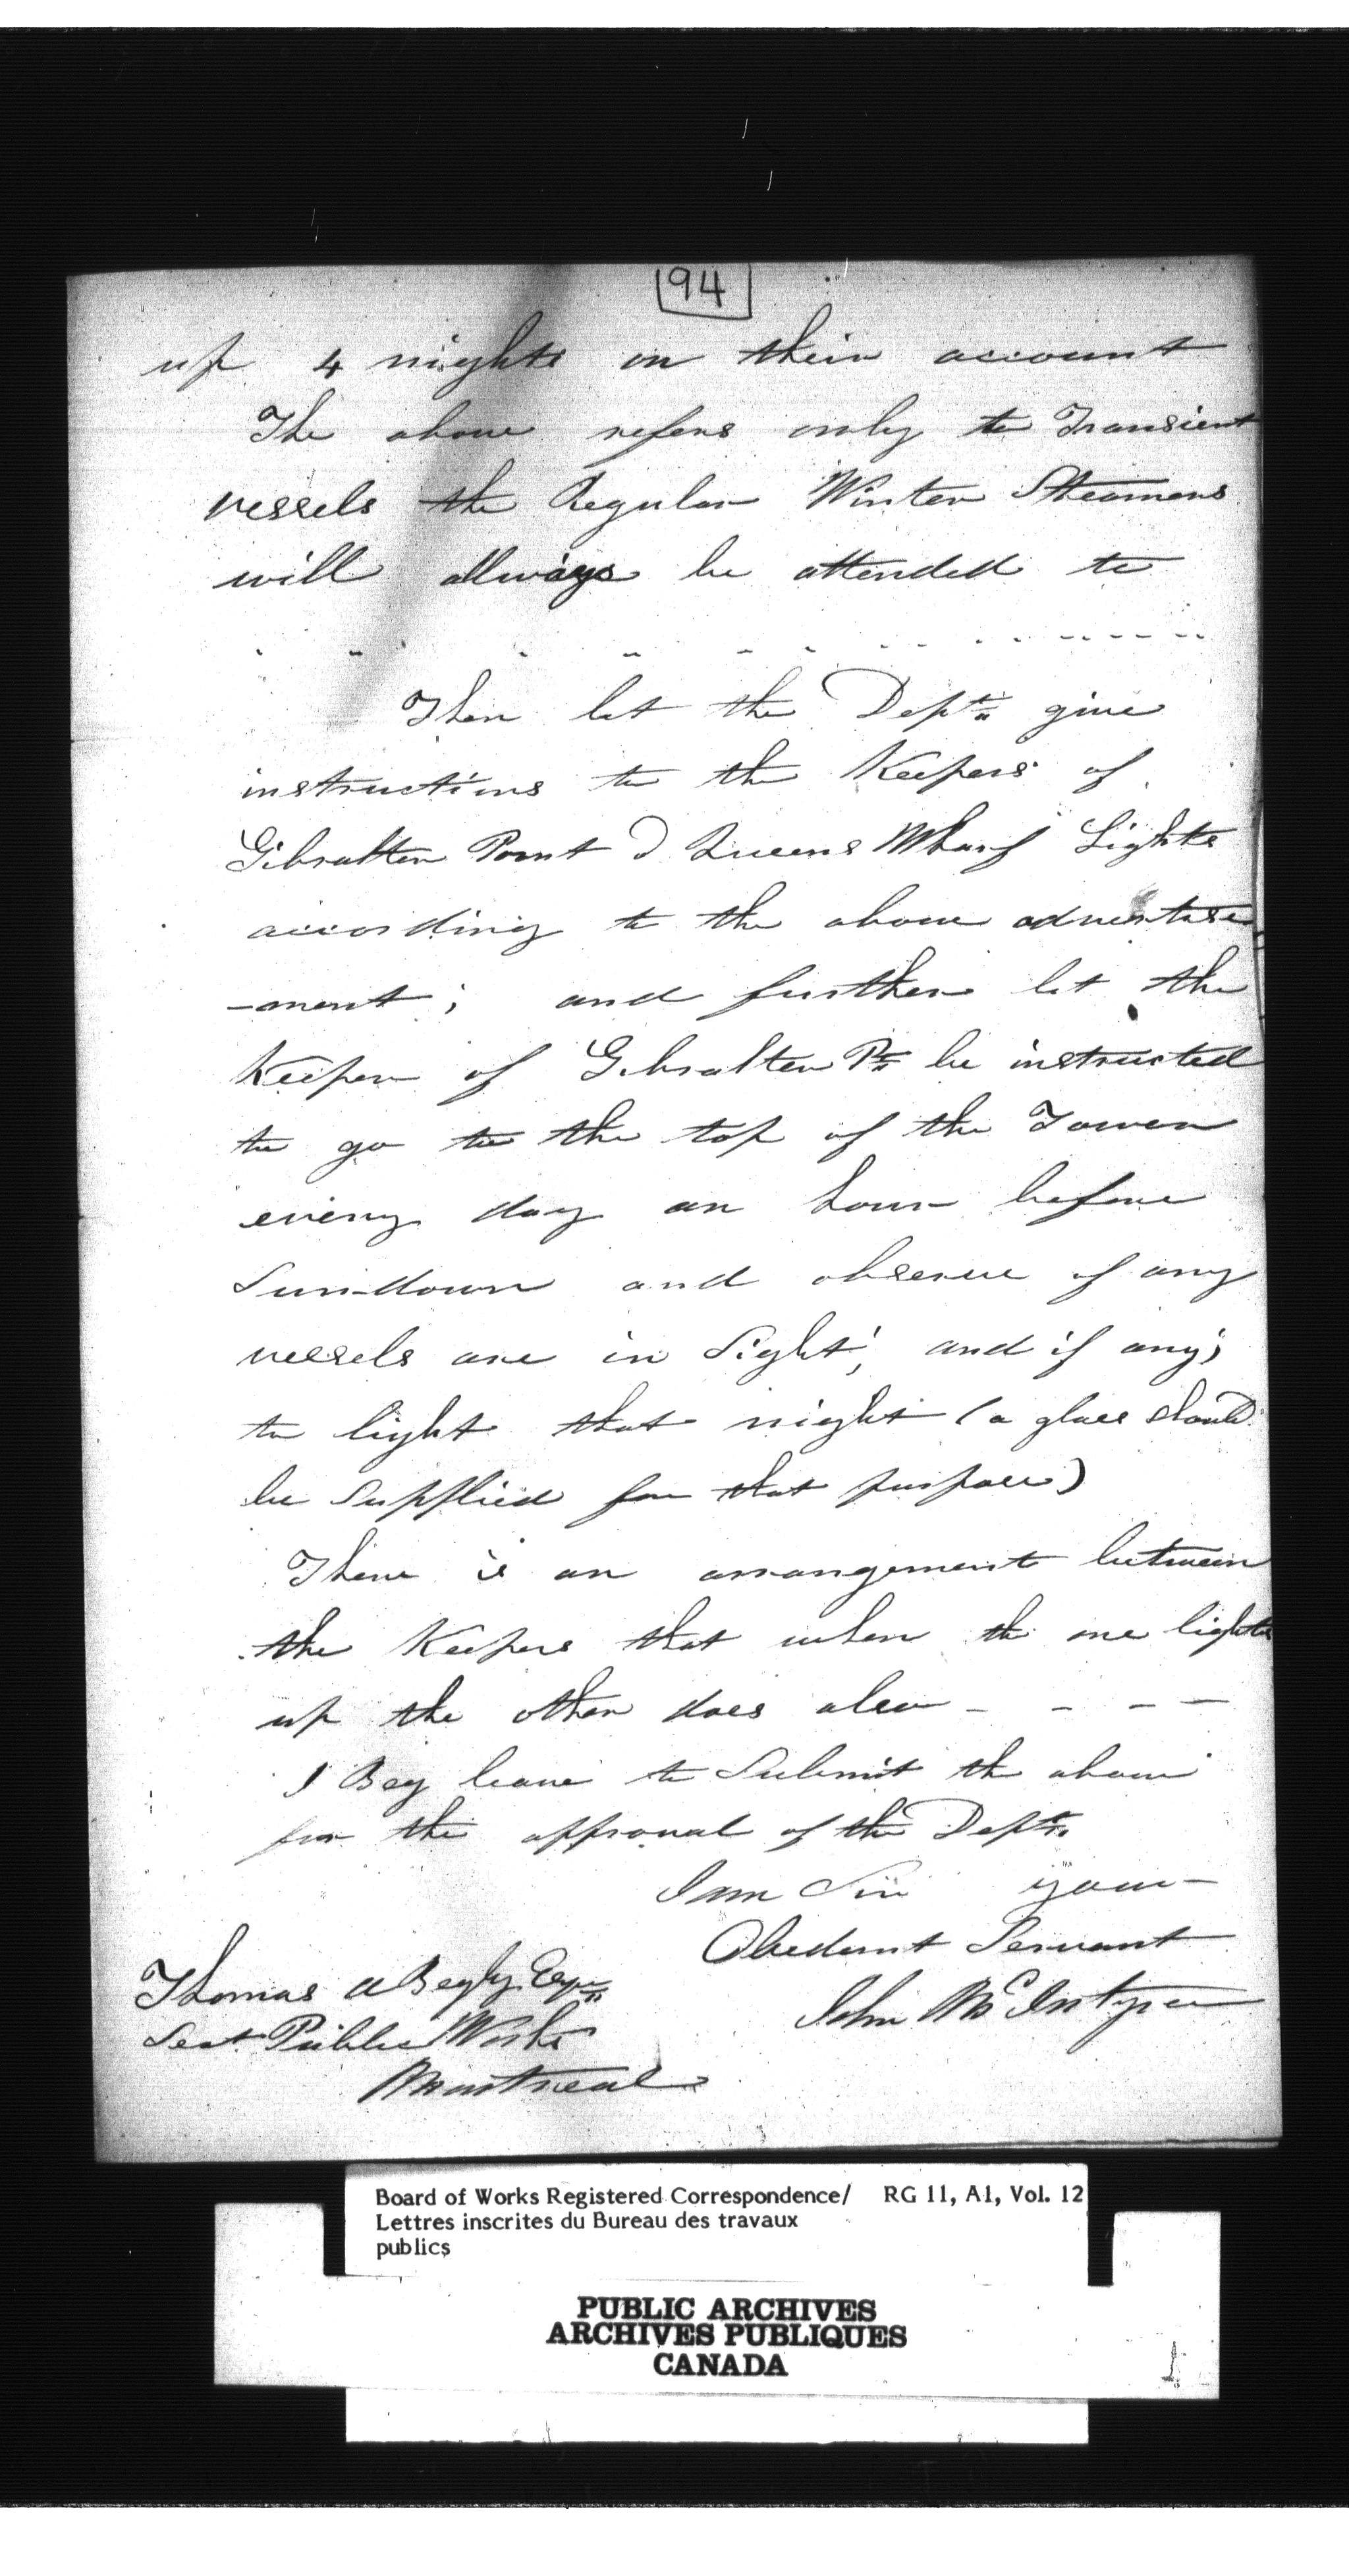 94
up 4 nights on their account
The above refers only to Transient
vessels the Regular Winter Steamers
will allways be attended to
Then let the Dept. give
instructions to the Keepers of
Gibralter Point & Queens Wharf Lights
according to the above advertise
-ment; and further let the
Keeper of Gibralter Pt. be instructed
to go to the top of the Tower
every day an hour before
Sundown and observe if any
vessels are in Sight; and if any;
to light that night (a glass should
be Supplied for that purpose)
There is an arrangement between
the Keepers that when the one lights
up the other does also - - - -
I Beg leave to Submit the above
for the approval of the Dept.
I am Sir your
Obedient Servant
John McIntyre
Thomas A Begly Esqr.
Sect Public Works
Montreal
Board of Works Registered Correspondence/ RG 11, A1, Vol. 12
Lettres inscrites du Bureau des travaux
publics
PUBLIC ARCHIVES
ARCHIVES PUBLIQUES
CANADA